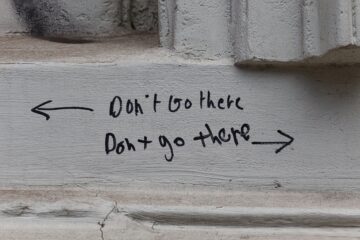 Don't Go there
Dont go there